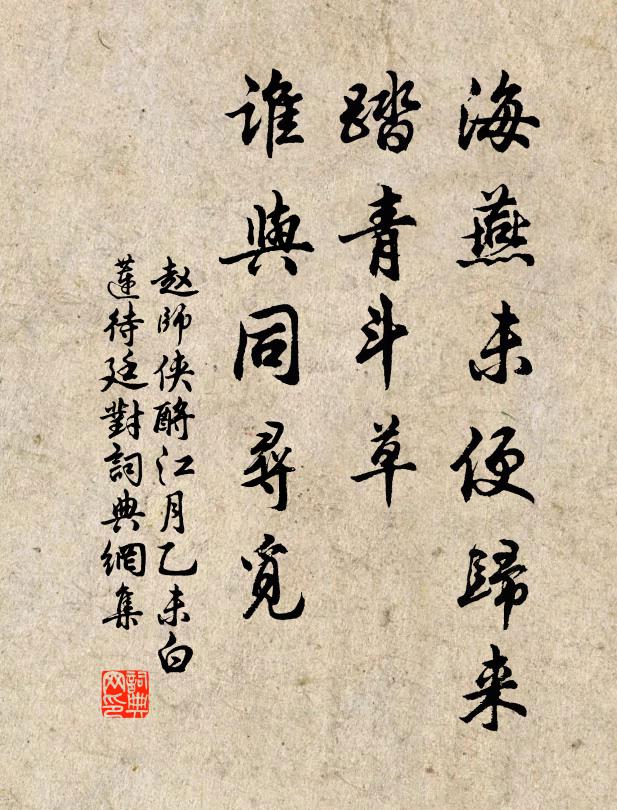 海燕未便歸来
踏青斗草
誰與同尋覓
赵師侠酹江月乙未白
蓮待廷對詞典網集
詞典网印